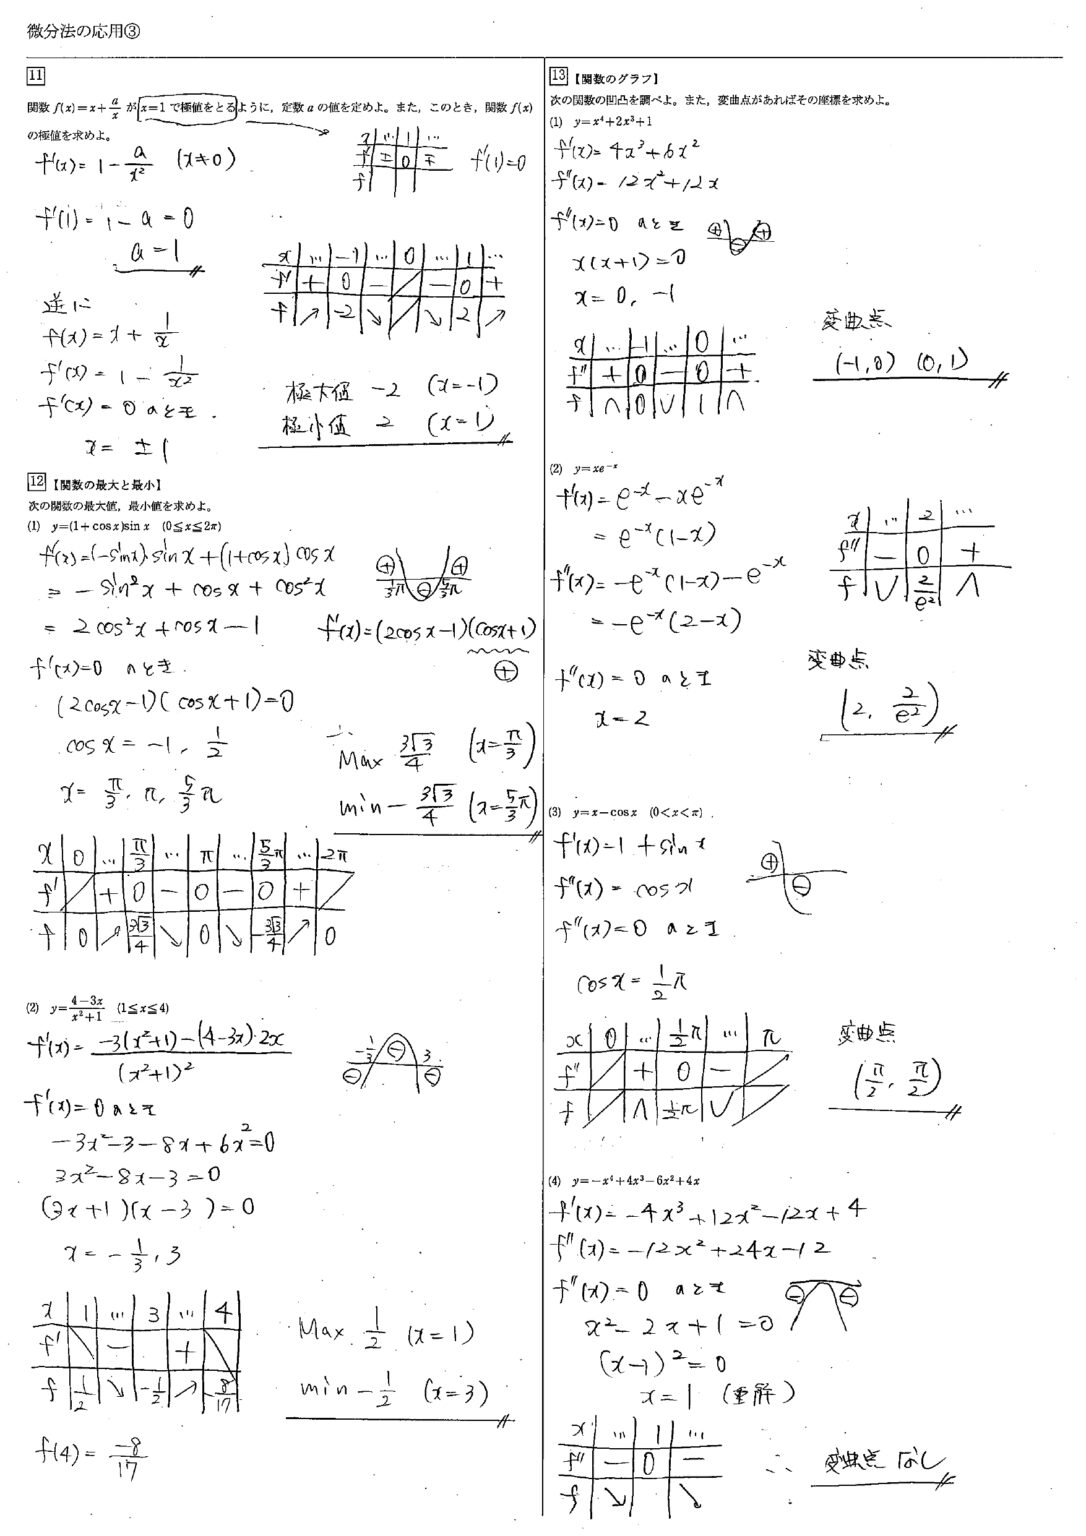 微分法の応用③
11
関数 f(x)=x+a/x が x=1 で極値をとるように，定数 a の値を定めよ。また，このとき，関数 f(x)
の極値を求めよ。
f'(x)= 1 - a/x² (x≠0)
x | … | 1 | …
f' | ± | 0 | ∓
f
f'(1)=0
f'(1) = 1 - a = 0
a = 1
x | … | -1 | … | 0 | … | 1 | …
f' | + | 0 | − | ／ | − | 0 | +
f | ↗ | -2 | ↘ | ／ | ↘ | 2 | ↗
逆に
f(x) = x + 1/x
f'(x) = 1 - 1/x²
f'(x) = 0 のとき.
x = ±1
極大値 -2 (x=-1)
極小値 2 (x=1)
12 【関数の最大と最小】
次の関数の最大値，最小値を求めよ。
(1) y=(1+cosx)sinx (0≦x≦2π)
f'(x)=(-sinx)·sinx+(1+cosx)cosx
= -sin²x + cosx + cos²x
= 2cos²x+cosx-1
⊕ ⊖ ⊕
1/3π 5/3π
f'(x)=(2cosx-1)(cosx+1)
⊕
f'(x)=0 のとき.
(2cosx-1)(cosx+1)=0
cosx = -1, 1/2
x= π/3, π, 5/3π
∴
Max 3√3/4 (x=π/3)
min -3√3/4 (x=5/3π)
x | 0 | … | π/3 | … | π | … | 5/3π | … | 2π
f' | ／ | + | 0 | − | 0 | − | 0 | + | ／
f | 0 | ↗ | 3√3/4 | ↘ | 0 | ↘ | -3√3/4 | ↗ | 0
(2) y=4-3x/x²+1 (1≦x≦4)
f'(x)= -3(x²+1)-(4-3x)·2x/(x²+1)²
-1/3 ⊖ 3
⊖ ⊖
f'(x)=0 のとき
-3x²-3-8x+6x²=0
3x²-8x-3=0
(3x+1)(x-3)=0
x = -1/3, 3
x | 1 | … | 3 | … | 4
f' | ＼ | − | | + | ＼
f | 1/2 | ↘ | -1/2 | ↗ | -8/17
Max 1/2 (x=1)
min -1/2 (x=3)
f(4) = -8/17
13 【関数のグラフ】
次の関数の凹凸を調べよ。また，変曲点があればその座標を求めよ。
(1) y=x⁴+2x³+1
f'(x)= 4x³+6x²
f''(x)= 12x²+12x
f''(x)=0 のとき
⊕ ⊖ ⊕
x(x+1)=0
x= 0, -1
x | … | -1 | … | 0 | …
f'' | + | 0 | − | 0 | +
f | ∧ | 0 | ∨ | 1 | ∧
変曲点
(-1,0) (0,1)
(2) y=xe⁻ˣ
f'(x)= e⁻ˣ - xe⁻ˣ
= e⁻ˣ(1-x)
f''(x)= -e⁻ˣ(1-x) - e⁻ˣ
= -e⁻ˣ(2-x)
x | … | 2 | …
f'' | − | 0 | +
f | ∨ | 2/e² | ∧
f''(x) = 0 のとき
x = 2
変曲点
(2, 2/e²)
(3) y=x-cosx (0<x<π)
f'(x)=1+sinx
f''(x)= cosx
⊕ ⊖
f''(x)=0 のとき
cosx = 1/2π
x | 0 | … | 1/2π | … | π
f'' | ／ | + | 0 | − | ／
f | ／ | ∧ | 1/2π | ∨ | ／
変曲点
(π/2, π/2)
(4) y=-x⁴+4x³-6x²+4x
f'(x)= -4x³+12x²-12x+4
f''(x)= -12x²+24x-12
f''(x)=0 のとき
⊖ ⊖
x²-2x+1=0
(x-1)²=0
x=1 (重解)
x | … | 1 | …
f'' | − | 0 | −
f | ↘ | | ↘
∴ 変曲点 なし